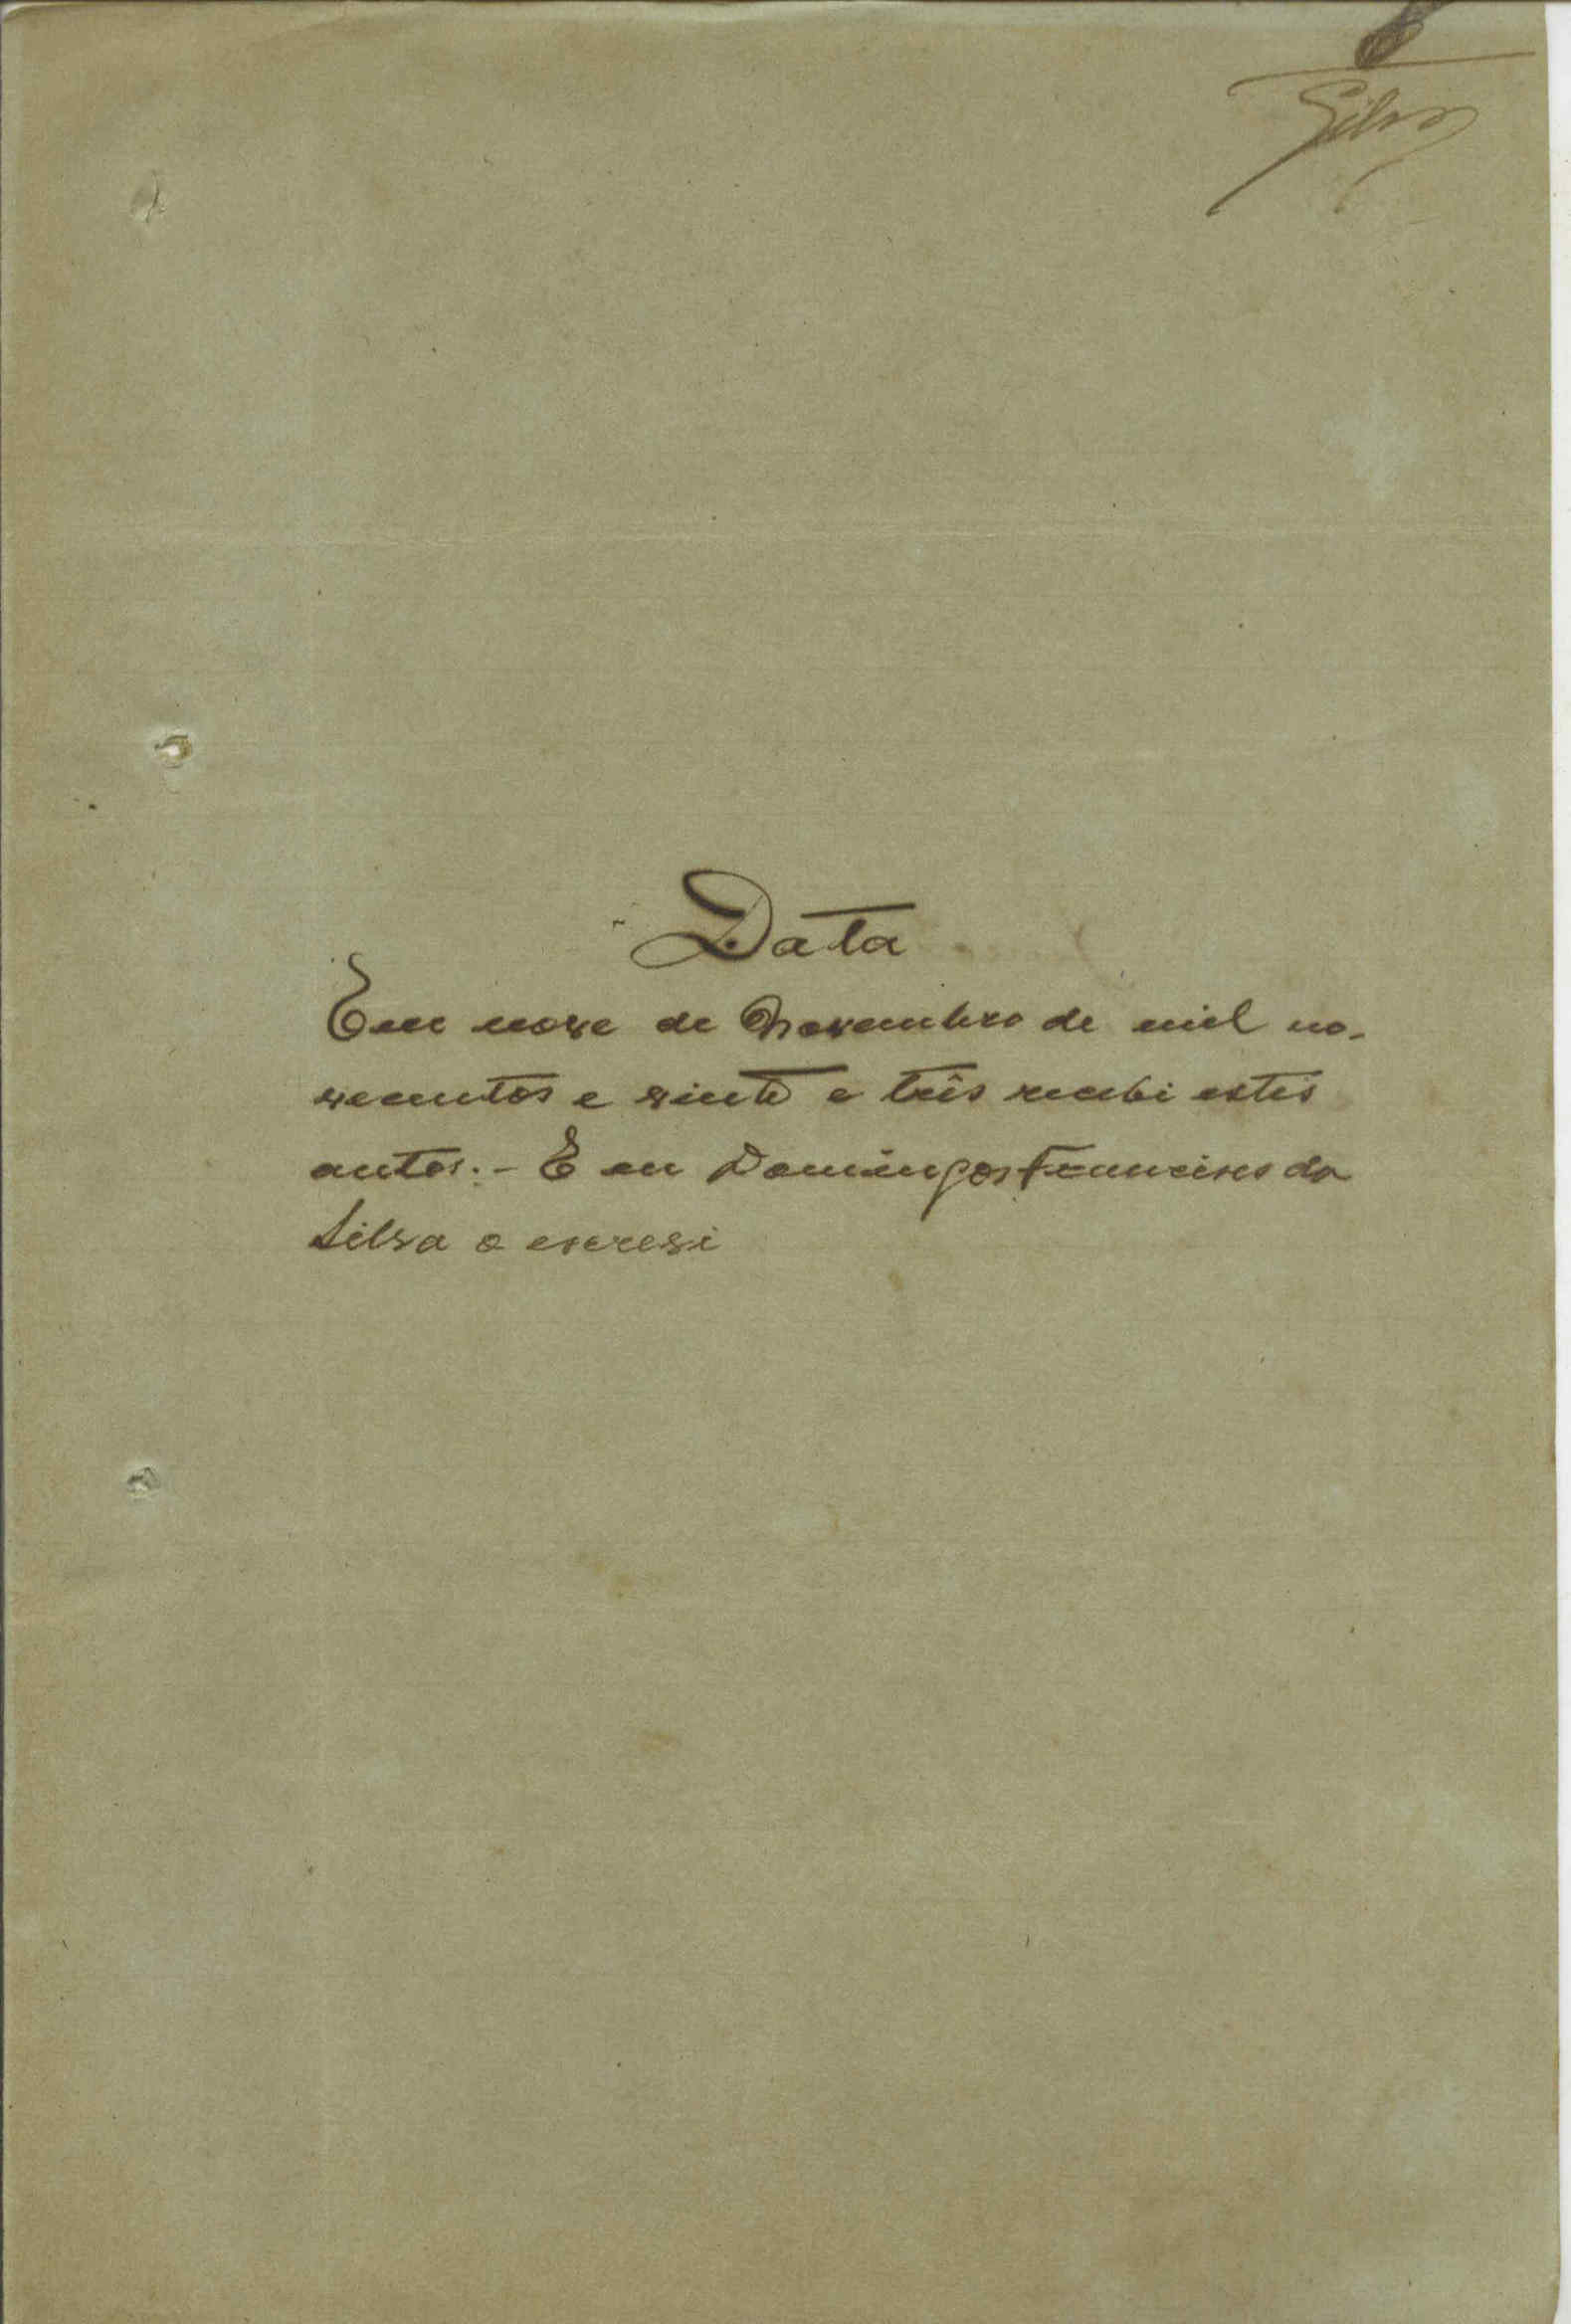 Silva
Data
Em nove de Novembro de mil no-
vecentos e vinte e três recebi estes
autos. - E eu Domingos Francisco da
Silva o escrevi